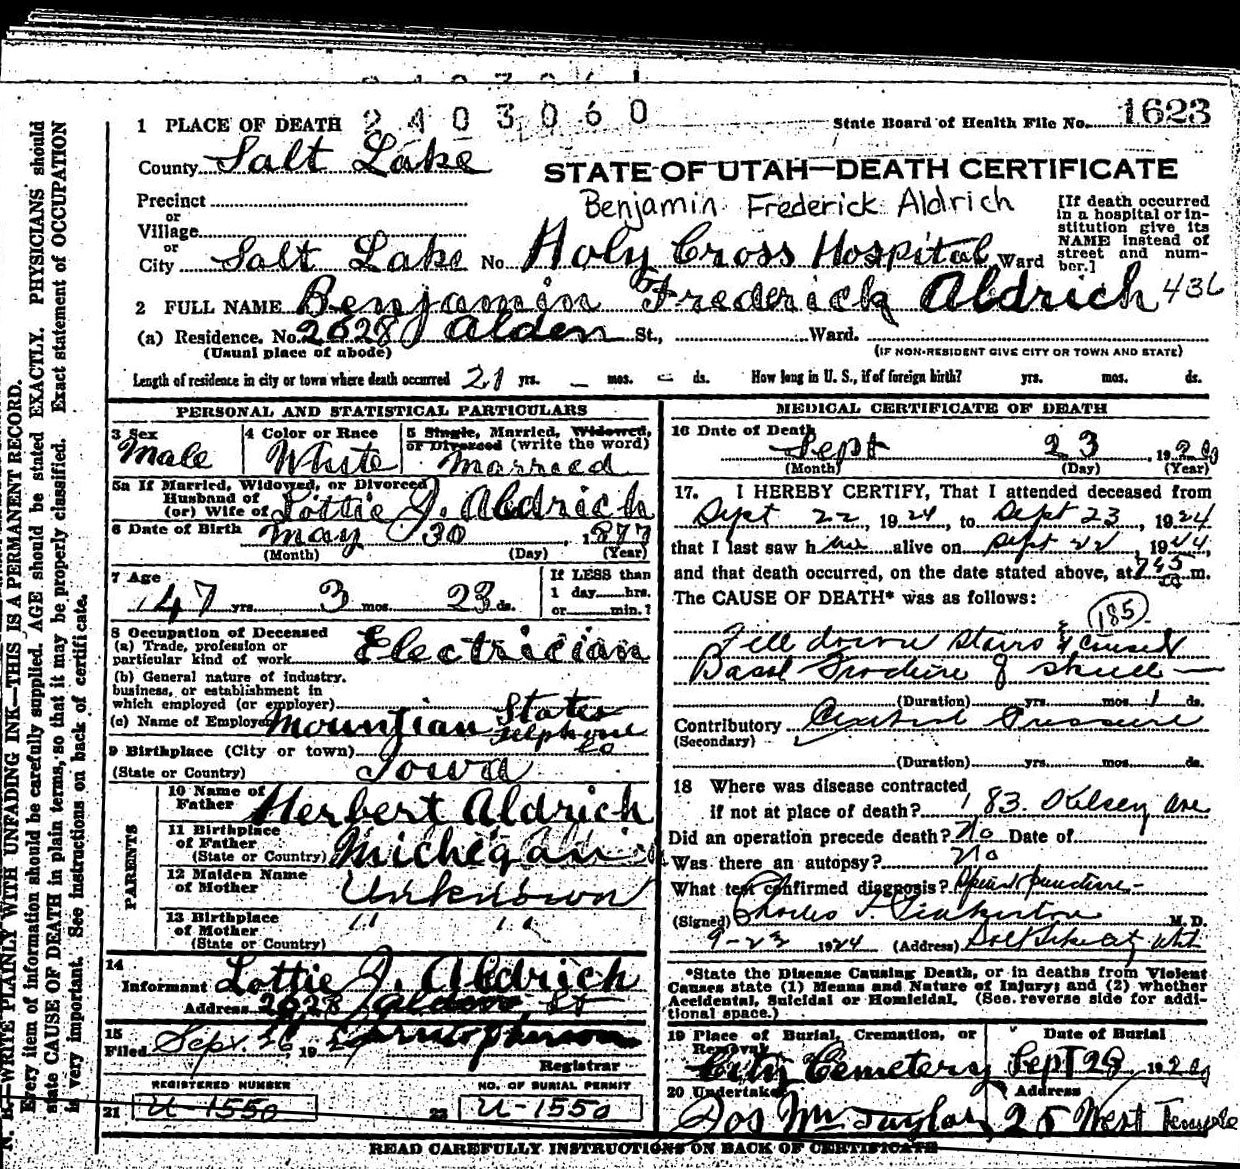 2403060
1 PLACE OF DEATH 2403060
State Board of Health File No. 1623
County Salt Lake
STATE OF UTAH—DEATH CERTIFICATE
Precinct
or
Village
or
City Salt Lake No. Holy Cross Hospital Ward
Benjamin Frederick Aldrich
[If death occurred
in a hospital or in-
stitution give its
NAME instead of
street and num-
ber.]
2 FULL NAME Benjamin Frederick Aldrich 436
(a) Residence. No. 2628 Alden St., Ward.
(Usual place of abode) (IF NON-RESIDENT GIVE CITY OR TOWN AND STATE)
Length of residence in city or town where death occurred 21 yrs. — mos. — ds. How long in U. S., if of foreign birth? yrs. mos. ds.
PERSONAL AND STATISTICAL PARTICULARS
3 Sex
Male
4 Color or Race
White
5 Single, Married, Widowed,
or Divorced (write the word)
Married
5a If Married, Widowed, or Divorced
Husband of
(or) Wife of Lottie J. Aldrich
6 Date of Birth May 30, 1877
(Month) (Day) (Year)
7 Age
47 yrs. 3 mos. 23 ds.
If LESS than
1 day hrs.
or min.?
8 Occupation of Deceased
(a) Trade, profession or
particular kind of work Electrician
(b) General nature of industry,
business, or establishment in
which employed (or employer)
(c) Name of Employer Mountian States
Telphone Co
9 Birthplace (City or town)
(State or Country) Iowa
PARENTS
10 Name of
Father Herbert Aldrich
11 Birthplace
of Father
(State or Country) Michegan
12 Maiden Name
of Mother Unknown
13 Birthplace
of Mother " "
(State or Country)
14
Informant Lottie J. Aldrich
Address 2628 Alden St
15
Filed Sept. 26, 1924
Registrar
REGISTERED NUMBER
21 U-1550
NO. OF BURIAL PERMIT
22 U-1550
MEDICAL CERTIFICATE OF DEATH
16 Date of Death
Sept 23 192
(Month) (Day) (Year)
17. I HEREBY CERTIFY, That I attended deceased from
Sept 22, 1924, to Sept 23, 1924
that I last saw him alive on Sept 22, 1924,
and that death occurred, on the date stated above, at 745 a m.
The CAUSE OF DEATH* was as follows:
185
Fell down stairs & caused
Basal Fracture of skull —
(Duration) yrs. mos. 1 ds.
Contributory Pressure
(Secondary)
(Duration) yrs. mos. ds.
18 Where was disease contracted
if not at place of death? 183 Kelsey Ave
Did an operation precede death? No Date of
Was there an autopsy? No
What test confirmed diagnosis? Spinal puncture -
(Signed) Charles F. Pinkerton M. D.
9-23 1924 (Address) Salt Lake City Utah
*State the Disease Causing Death, or in deaths from Violent
Causes state (1) Means and Nature of Injury; and (2) whether
Accidental, Suicidal or Homicidal. (See reverse side for addi-
tional space.)
19 Place of Burial, Cremation, or
Removal
City Cemetery
Date of Burial
Sept 28, 192
20 Undertaker
Jos Wm Taylor
Address
25 West Temple
READ CAREFULLY INSTRUCTIONS ON BACK OF CERTIFICATE
N. B.—WRITE PLAINLY WITH UNFADING INK—THIS IS A PERMANENT RECORD.
Every item of information should be carefully supplied. AGE should be stated EXACTLY. PHYSICIANS should
state CAUSE OF DEATH in plain terms, so that it may be properly classified. Exact statement of OCCUPATION
is very important. See instructions on back of certificate.